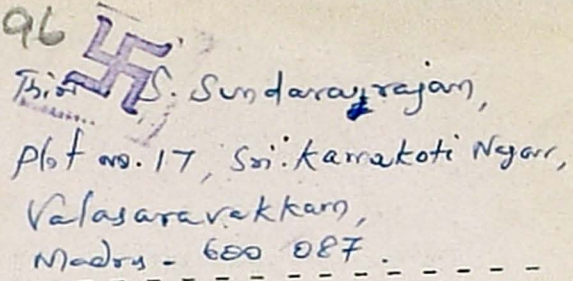 96
Thiru S. Sundararajan,
Plot no. 17, Sri. Kamakoti Nagar,
Valasaravakkam,
Madras - 600 087.